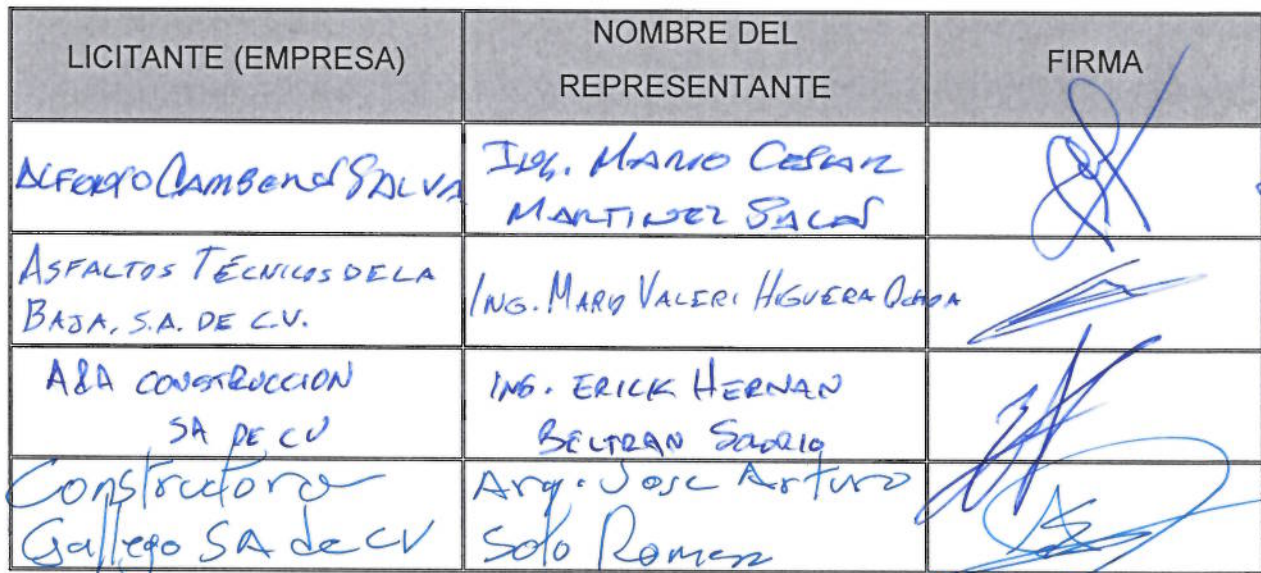 LICITANTE (EMPRESA)
NOMBRE DEL
REPRESENTANTE
FIRMA
ALFEDRO CAMBEROS SALVA
ING. MARIO CESAR
MARTINEZ
ASFALTOS TÉCNICOS DE LA
BAJA, S.A. DE C.V.
ING. MARIO VALERI HIGUERA OCHOA
A&A CONSTRUCCION
SA DE CV
ING. ERICK HERNAN
BELTRAN
Constructora
Gallego SA de CV
Arq. Jose Arturo
Soto Roman